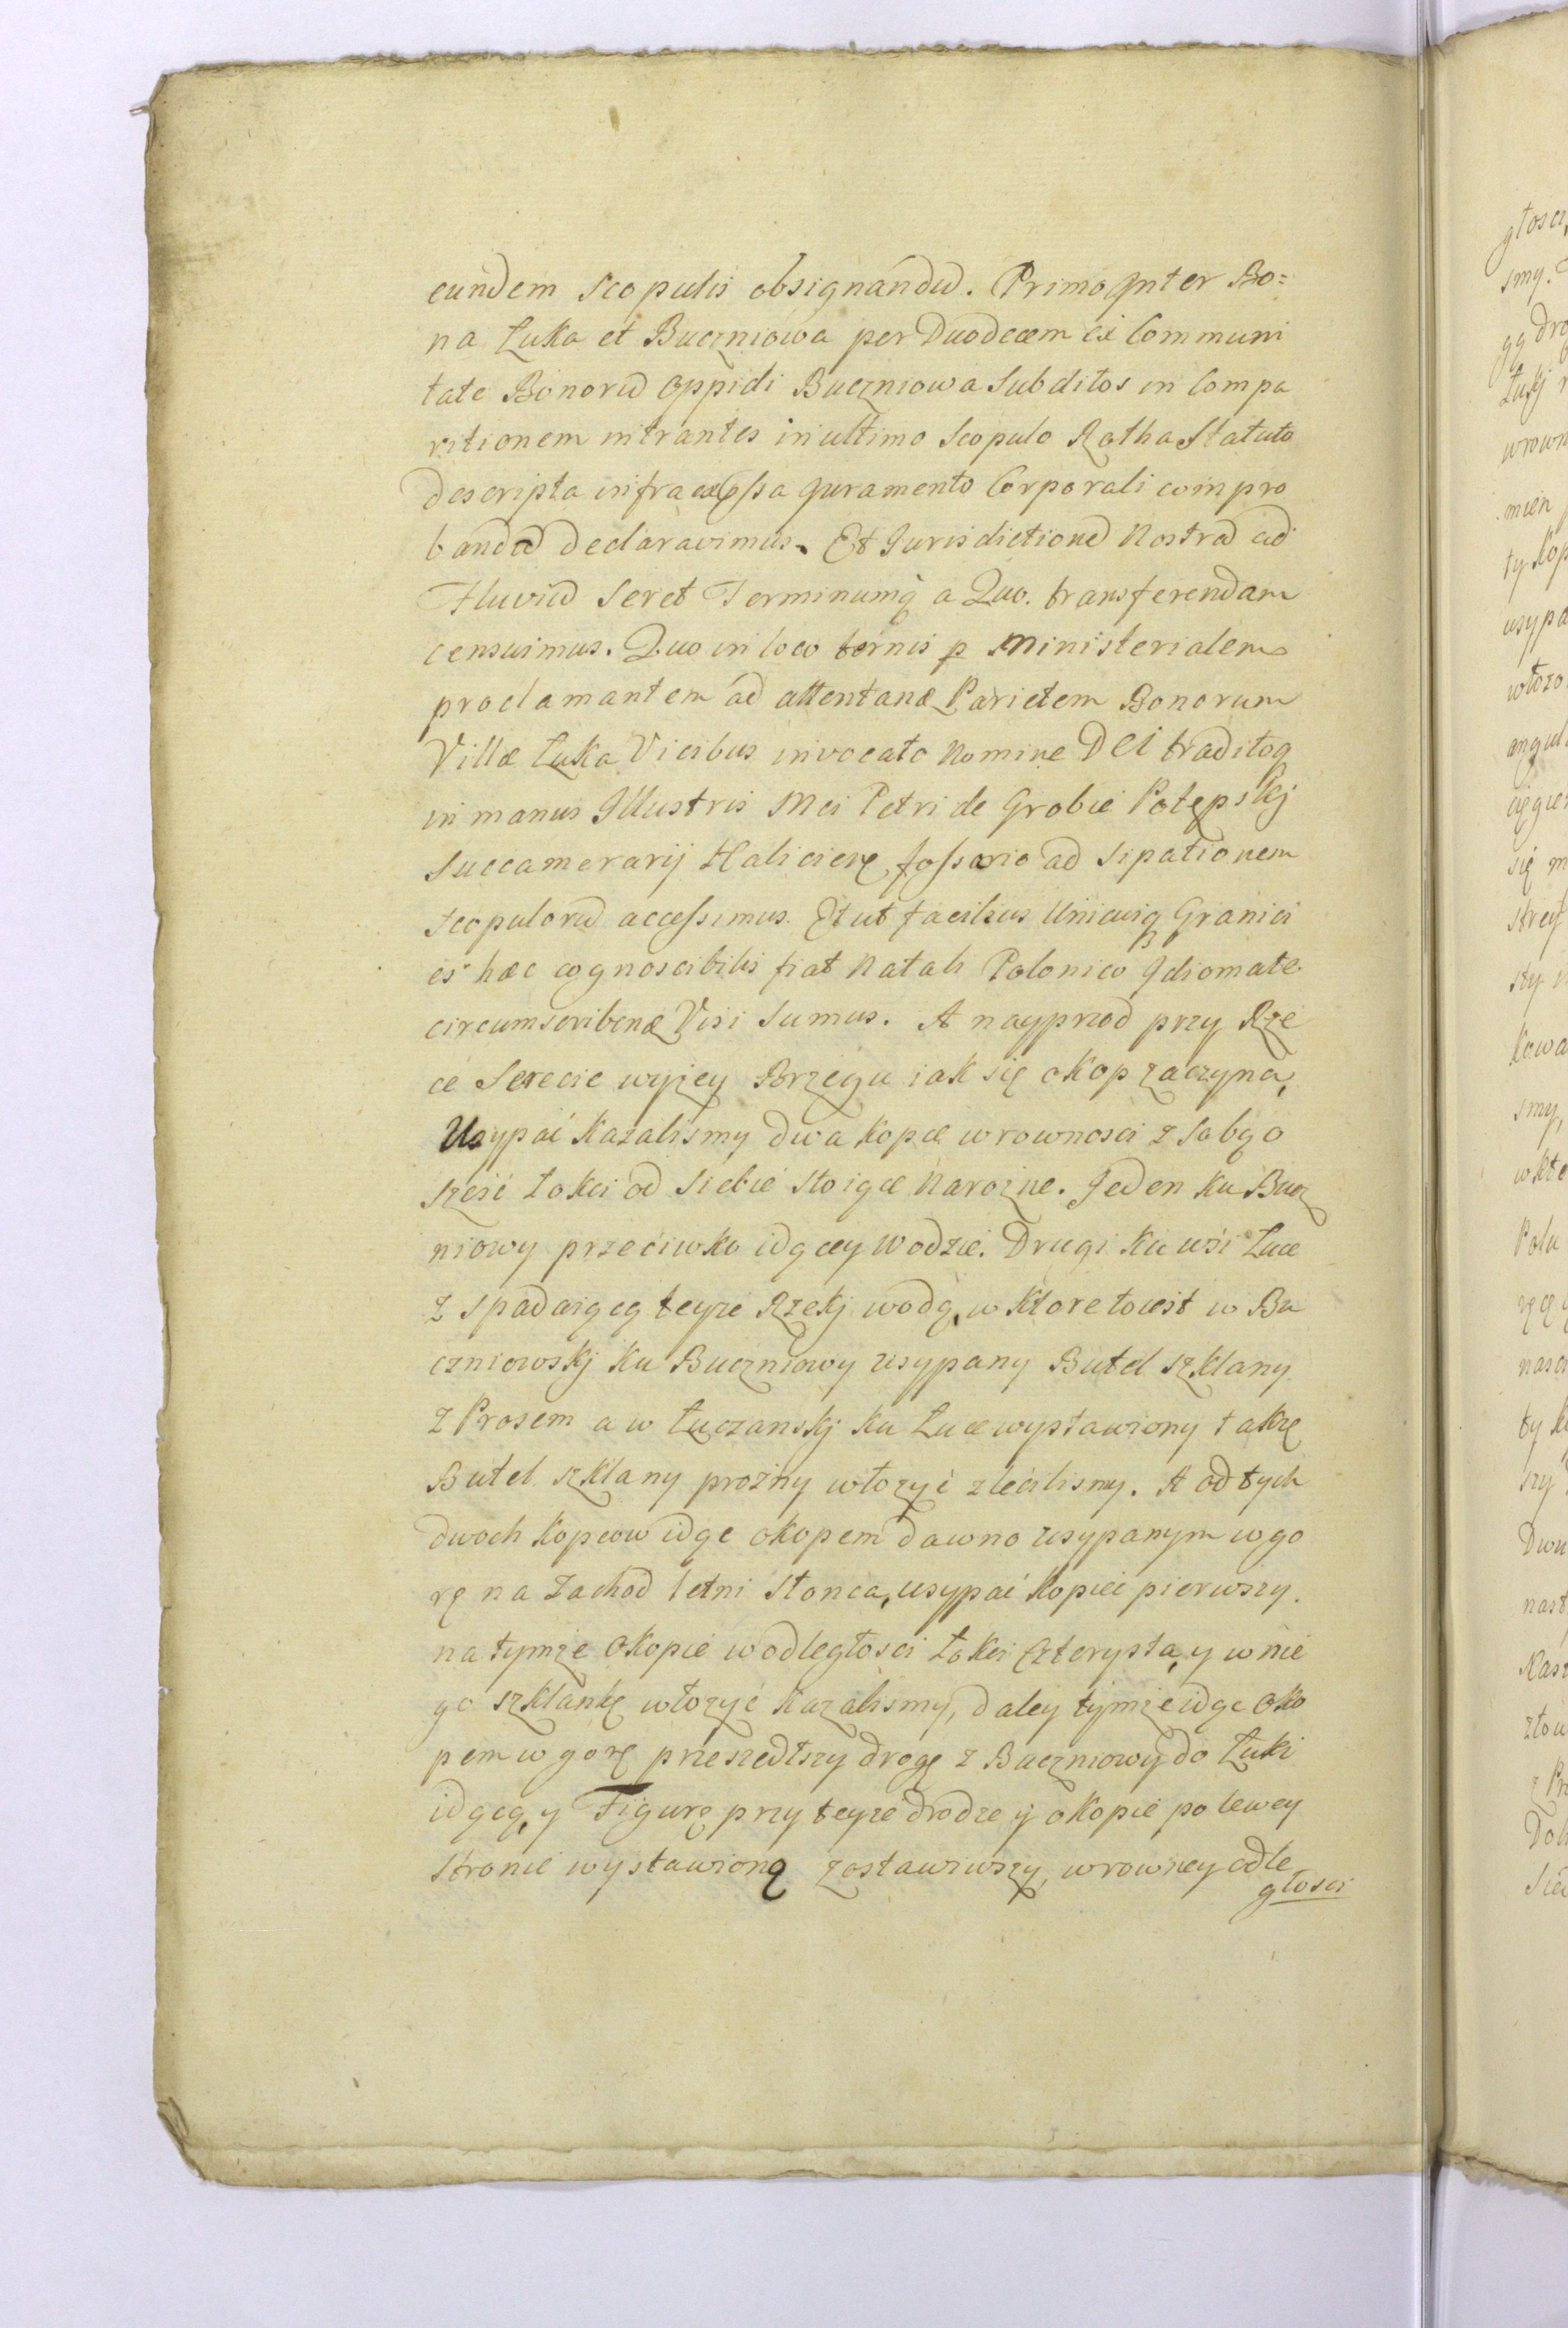 eundem Scopulis obsignandū. Primo Inter Bo=
na Łuka et Buczniowa per Duodecem ex Communi
tate Bonorū Oppidi Buczniowa Subditos in Compa
ritionem intrantes in ultimo Scopulo Rotha Statuto
descripta infra Juramento Corporali compro
bandū declaravimus. Et Jurisdictionē Nostrā ad
Fluviū Seret Terminumq̃ a Quo. transferendam
censuimus. Quo in loco ternis p Ministerialem
proclamantem ad attentanđ Parietem Bonorum
Villæ Łuka Vicibus invocato Nomine DEI traditoq
in manus Illustris Mci Petri de Grobie Potępskj
Succamerarij Haliciensę fossorio ad Sipationem
Scopulorū accessimus. Et ut facilius Unicuiq Granici
es hæc cognoscibilis fiat Natali Polonico Idiomate
circumscribenđ Visi Sumus. A nayprzod przy Rze
ce Serecie wyzey Brzegu iak się okop zaczyna,
Usypać Kazalismy dwa kopce w rownosci z Sobą o
sześć Łokci od Siebie Stoiące Narożne. Jeden ku Bucz
niowy przeciwko idącey Wodzie. Drugi Ku wsi Łuce
z Spadaiącą teyże Rzekj wodą, w Ktore to iest w Bu
czniowskj Ku Buczniowy usypany Butel szklany
z Prosem a w Łuczanskj Ku Łuce wystawiony takze
Butel szklany prożny włozyć zlecilismy. A od tych
dwoch Kopcow idąc okopem dawno usypanym w go
rę na Zachod letni Słonca, usypać Kopiec pierwszy
na tymże Okopie w odległosci Łokci Czterysta, y w nie
go szklankę włozyć Kazalismy, daley tymże idąc Oko
pem w gorę przeszedłszy drogę z Buczniowy do Łuki
idącą, y Figurę przy teyze drodze ÿ okopie po lewey
stronie wystawioną zostawiwszy, w rowney odle
głosci